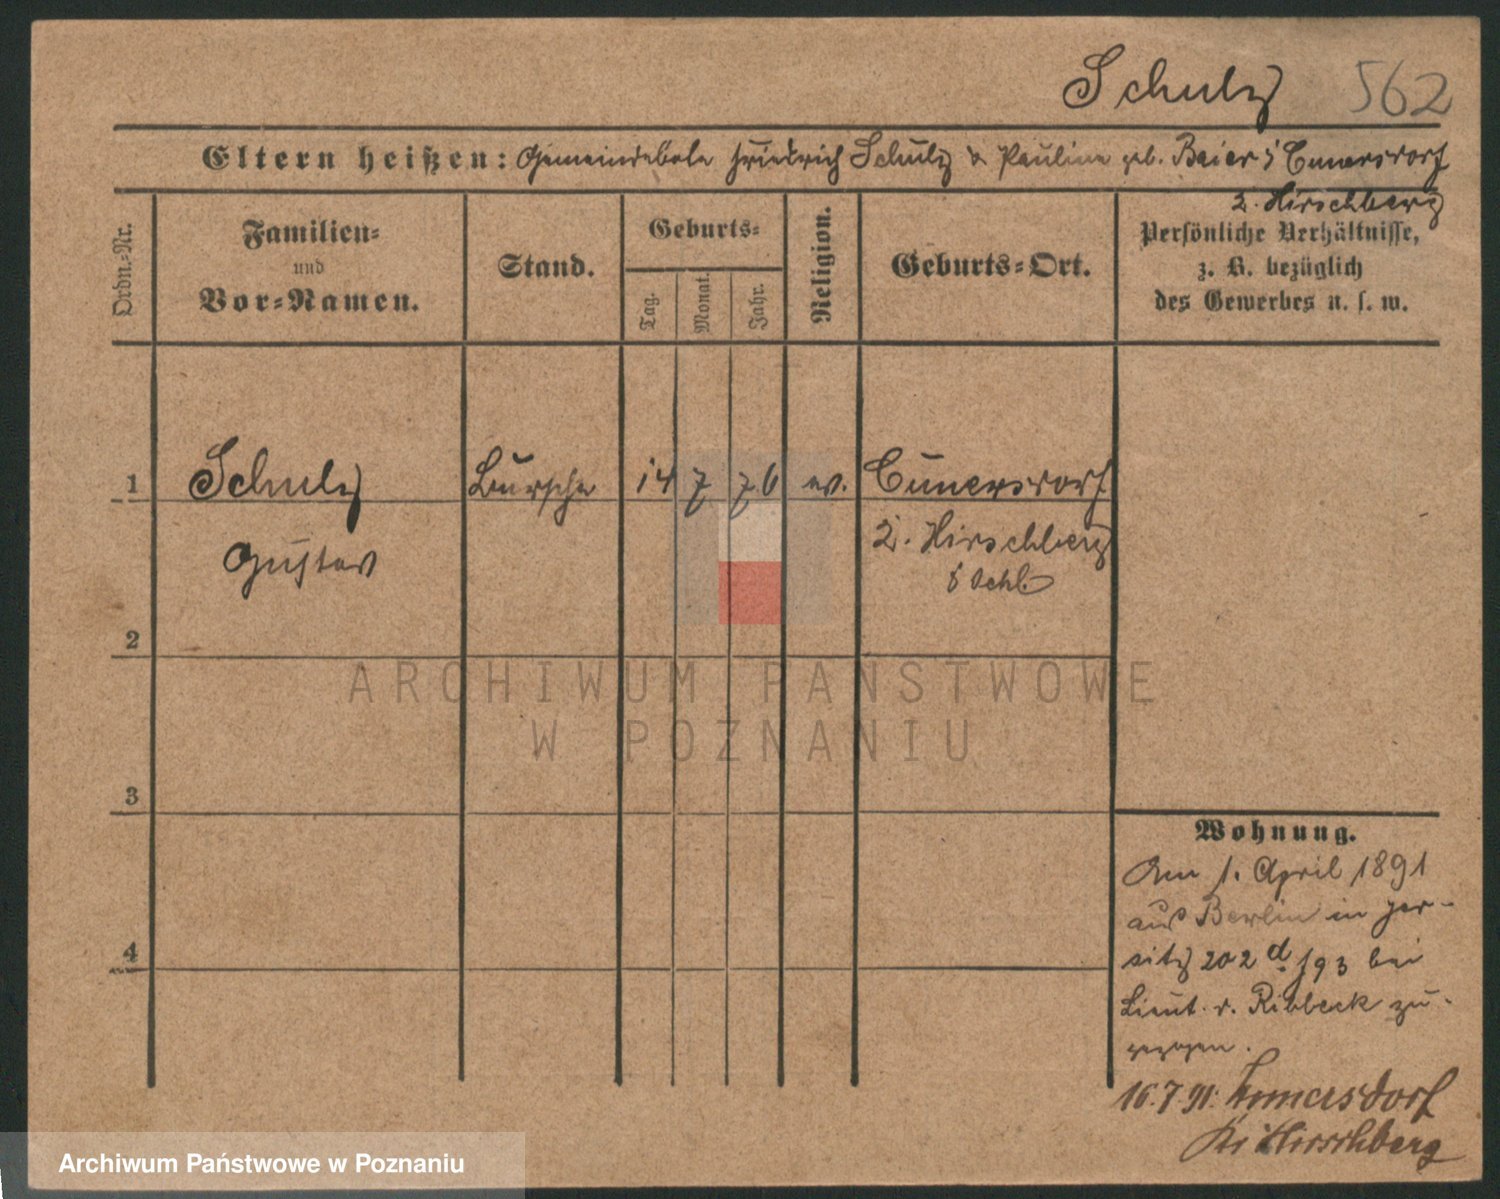 Schulz 562
Eltern heißen: Gemeindebote Friedrich Schulz & Pauline geb. Baier i/ Cunersdorf
z. Hirschberg
Ordn.-Nr.
Familien-
und
Vor-Namen.
Stand.
Geburts-
Tag.
Monat.
Jahr.
Religion.
Geburts-Ort.
Persönliche Verhältnisse,
z. B. bezüglich
des Gewerbes u. s. w.
1 Schulz Bursche 14 7 76 ev. Cunersdorf
Gustav
Hirschberg
i Schl.
2
3
4
ARCHIWUM PAŃSTWOWE
W POZNANIU
Wohnung.
Am 1. April 1891
aus Berlin in Jer-
sitz 202 d 193 bei
Lieut. v. Ribbeck zu-
gezogen.
16.7.91. Kunersdorf
Kr Hirschberg
Archiwum Państwowe w Poznaniu